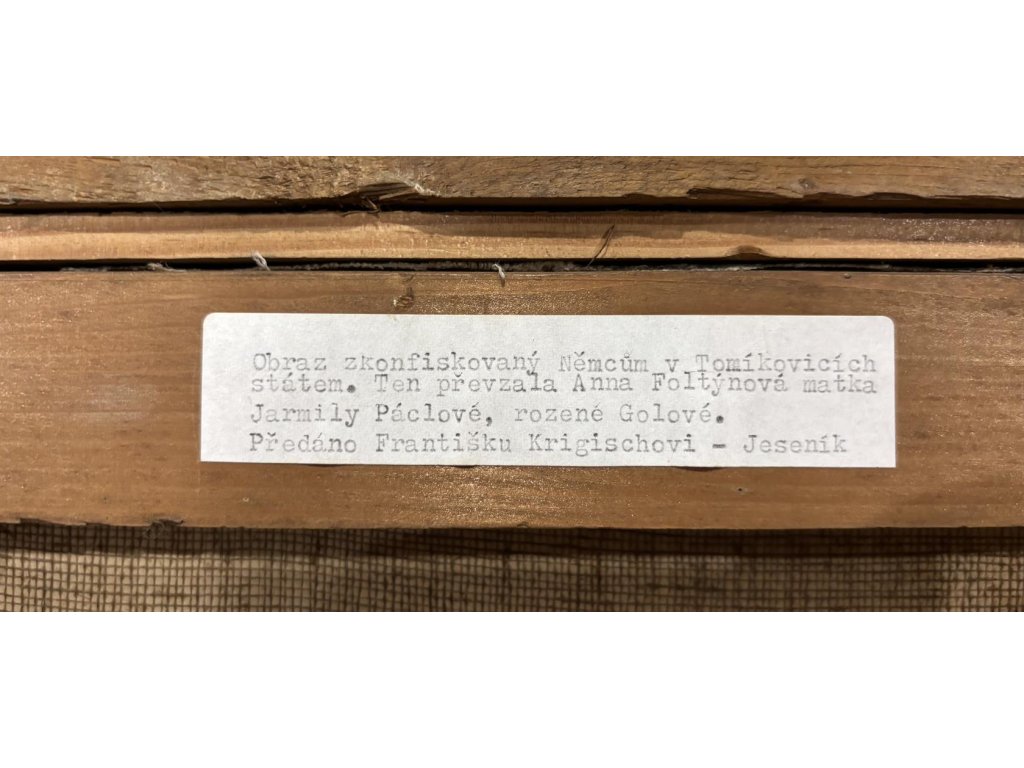 Obraz zkonfiskovaný Němcům v Tomíkovicích
státem. Ten převzala Anna Foltýnová matka
Jarmily Páclové, rozené Golové.
Předáno Františku Krigischovi - Jeseník